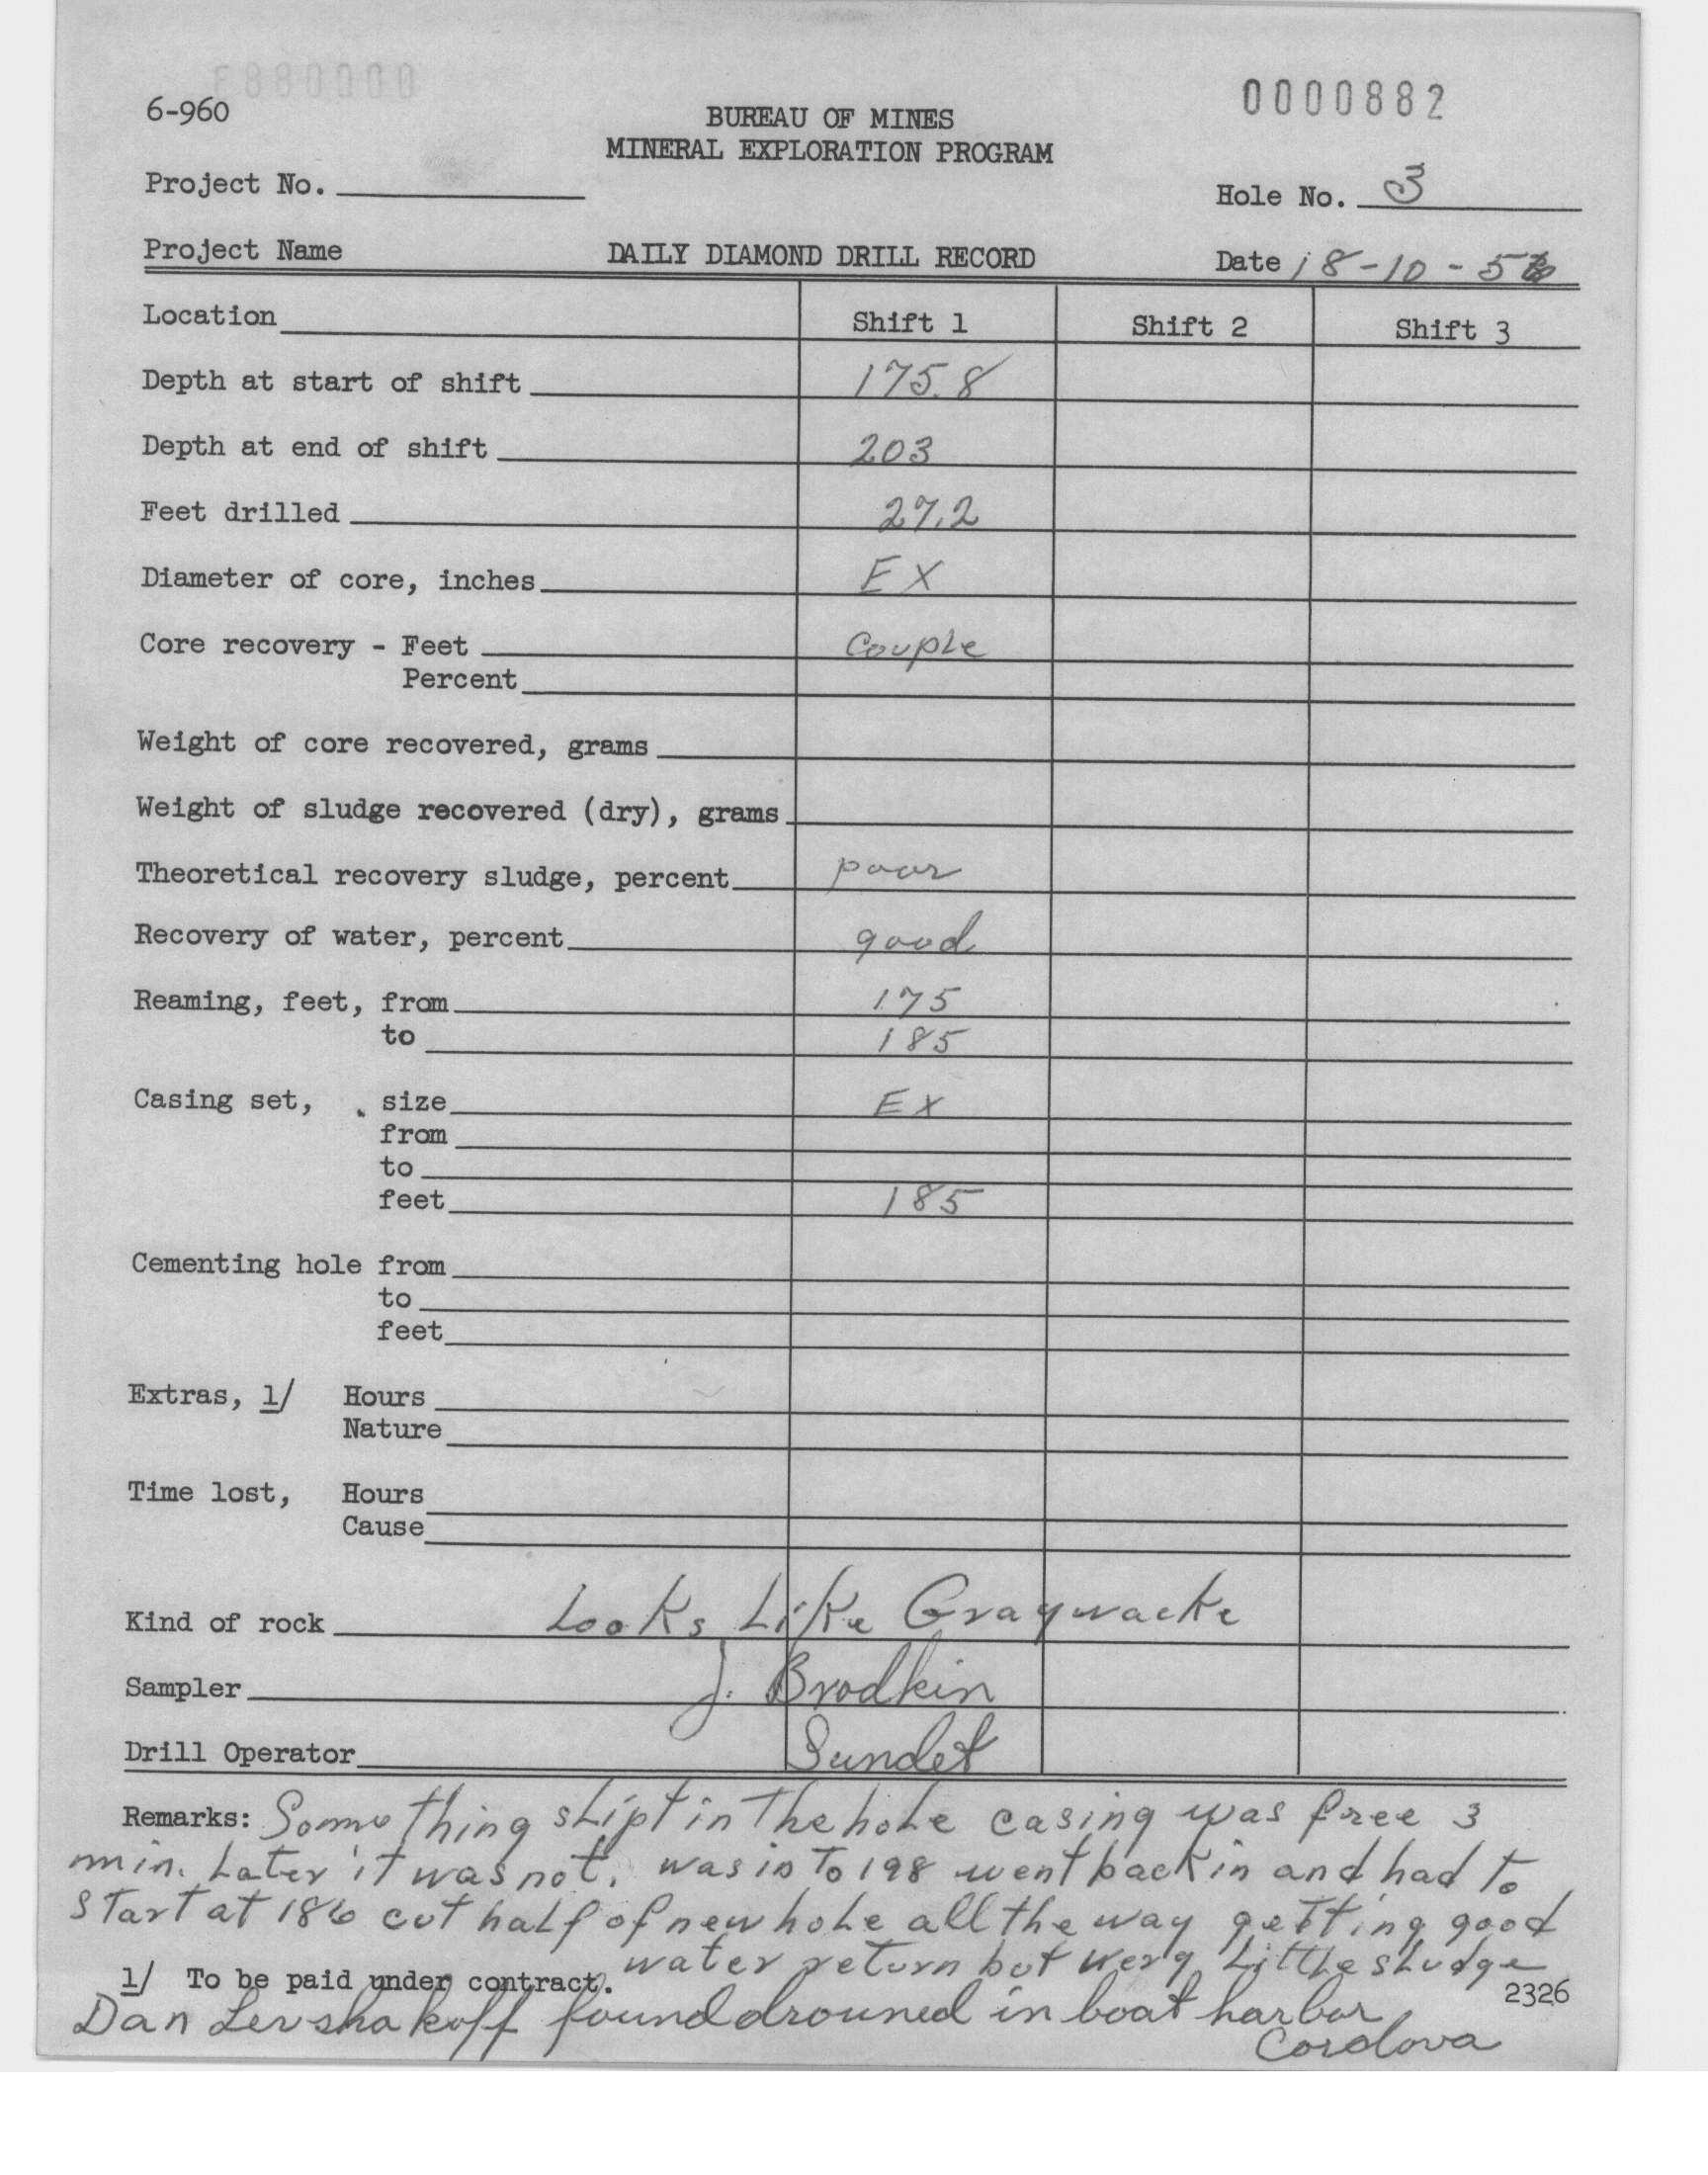 0000882
6-960
BUREAU OF MINES
MINERAL EXPLORATION PROGRAM
Project No.
Hole No. 3
Project Name DAILY DIAMOND DRILL RECORD Date 18-10-56
Location Shift 1 Shift 2 Shift 3
Depth at start of shift 175.8
Depth at end of shift 203
Feet drilled 27.2
Diameter of core, inches EX
Core recovery - Feet Couple
Percent
Weight of core recovered, grams
Weight of sludge recovered (dry), grams
Theoretical recovery sludge, percent poor
Recovery of water, percent good
Reaming, feet, from 175
to 185
Casing set, size EX
from
to
feet 185
Cementing hole from
to
feet
Extras, 1/ Hours
Nature
Time lost, Hours
Cause
Kind of rock Looks Like Graywacke
Sampler J. Brodkin
Drill Operator Sundet
Remarks: Something slipt in The hole casing was free 3
min. Later it was not. was in To 198 went back in and had to
start at 186 cut half of new hole all the way getting good
water return but very Little sludge
1/ To be paid under contract.
2326
Dan Levshakoff found drouned in boat harbor
Cordova